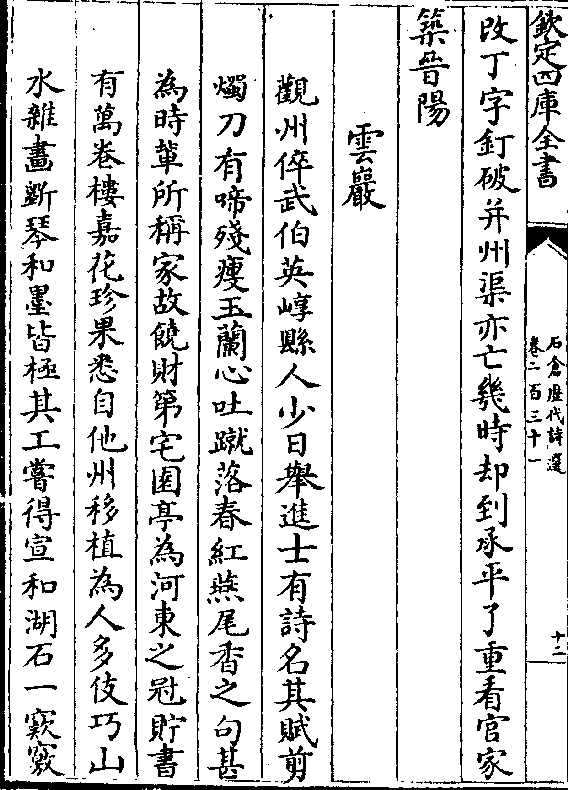 欽定四庫全書
石倉歷代詩選
卷二百三十一
十二
改丁字釘破并州渠亦亡幾時却到承平了重看官家
築晉陽
雲巖
觀州倅武伯英崞縣人少日舉進士有詩名其賦剪
燭刀有啼殘瘦玉蘭心吐蹴落春紅燕尾香之句甚
為時輩所稱家故饒財第宅園亭為河東之冠貯書
有萬卷樓嘉花珍果悉自他州移植為人多伎巧山
水雜畫斵琴和墨皆極其工嘗得宣和湖石一窾竅